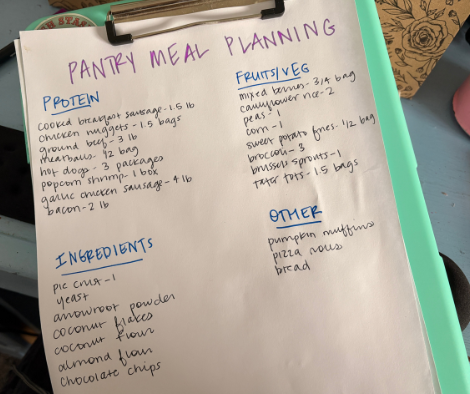 PANTRY MEAL PLANNING
PROTEIN
cooked breakfast sausage - 1.5 lb
chicken nuggets - 1.5 bags
ground beef - 3 lb
meatballs - 1/2 bag
hot dogs - 3 packages
popcorn shrimp - 1 box
garlic chicken sausage - 4 lb
bacon - 2 lb
INGREDIENTS
pie crust - 1
yeast
arrowroot powder
coconut flakes
coconut flour
almond flour
chocolate chips
FRUITS/VEG
mixed berries - 3/4 bag
cauliflower rice - 2
peas - 1
corn - 1
sweet potato fries - 1/2 bag
broccoli - 3
brussels sprouts - 1
tater tots - 1.5 bags
OTHER
pumpkin muffins
pizza rolls
bread